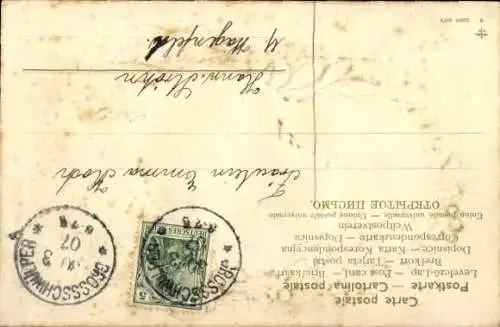 Carte postale
Postkarte — Cartolina postale
Levelező-Lap — Post card. — Brefkort
Brefkort — Tarjeta postal
Dopisnice — Karta Korespondencyjna
Correspondenzkarte — Dopisnica
Weltpostverein
Union postale universelle — Unione postale universale
ОТКРЫТОЕ ПИСЬМО.
Fräulein Emma Koch
Hann. Ströhen
b/ Wagenfeld.
DEUTSCHES
5
GROSSSCHWÜLPER
GROSSSCHWÜLPER
07